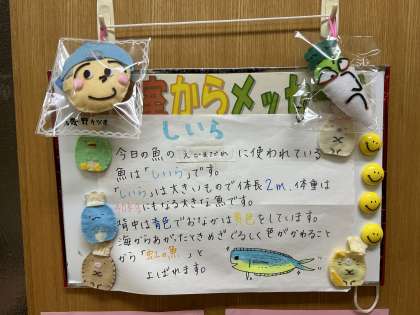 室からメッセ
しいら
今日の魚の に使われている
魚は「しいら」です。
「しいら」は大きいもので体長2m、体重は
にもなる大きな魚です。
背中は青色でおなかは黄色をしています。
海からあがったときめまぐるしく色がかわること
から「虹の魚」と
よばれます。